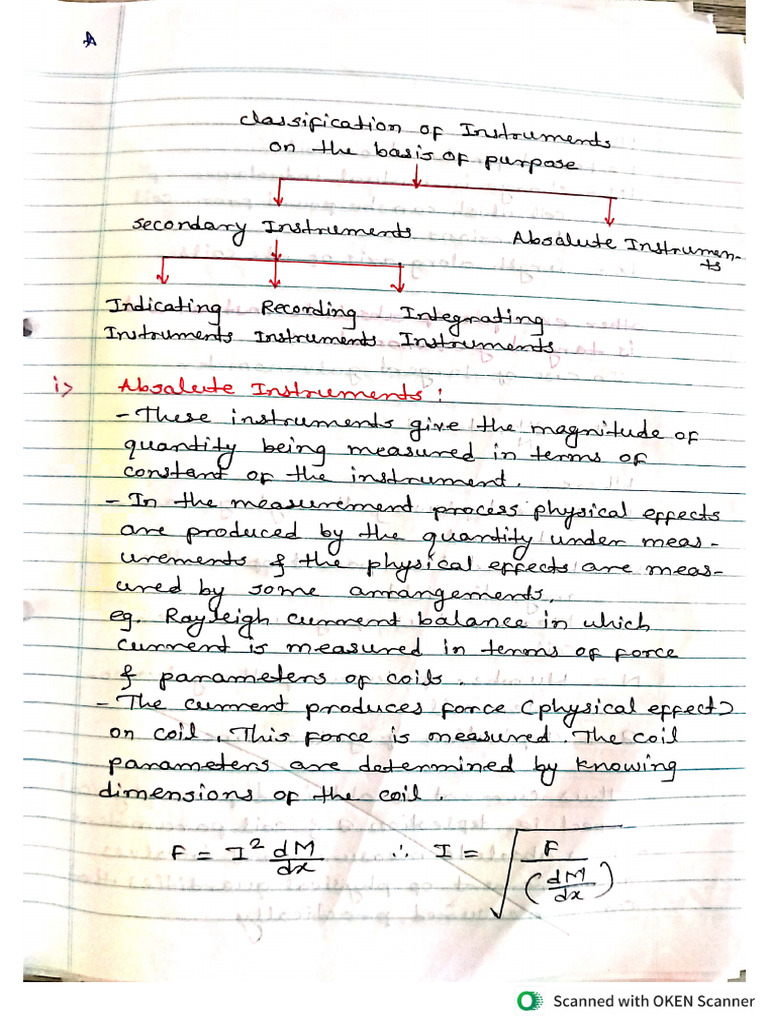 A
Classification of Instruments
on the basis of purpose
Secondary Instruments
Absolute Instrumen-
ts
Indicating Recording Integrating
Instruments Instruments Instruments
i> Absolute Instruments :
- These instruments give the magnitude of
quantity being measured in terms of
constant of the instrument.
- In the measurement process physical effects
are produced by the quantity under meas-
urements & the physical effects are meas-
ured by some arrangements.
eg. Rayleigh current balance in which
current is measured in terms of force
& parameters of coils.
- The current produces force (physical effect)
on coil. This force is measured. The coil
parameters are determined by knowing
dimensions of the coil.
F = I² dM/dx ∴ I = √(F/(dM/dx))
Scanned with OKEN Scanner